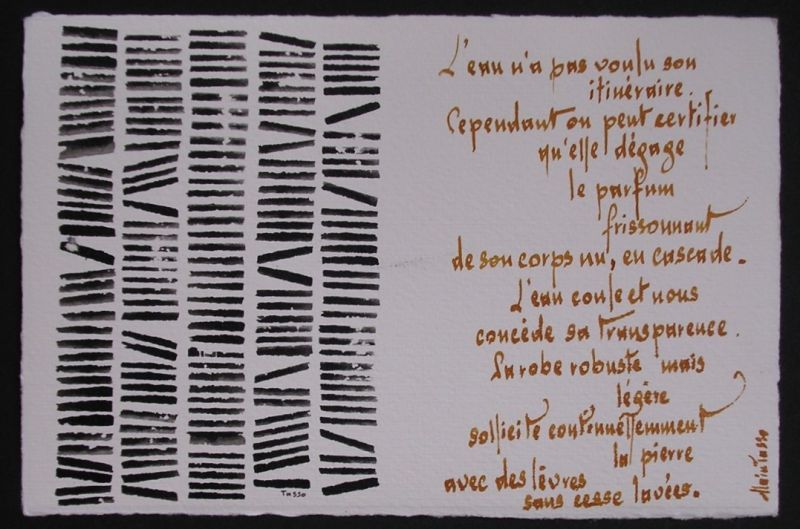 L'eau n'a pas voulu son
itinéraire.
Cependant on peut certifier
qu'elle dégage
le parfum
frissonnant
de son corps nu, en cascade.
L'eau coule et nous
concède sa transparence.
Sa robe robuste mais
légère
sollicite continuellement
la pierre
avec des lèvres
sans cesse lavées.
Alain Tasso
Tasso